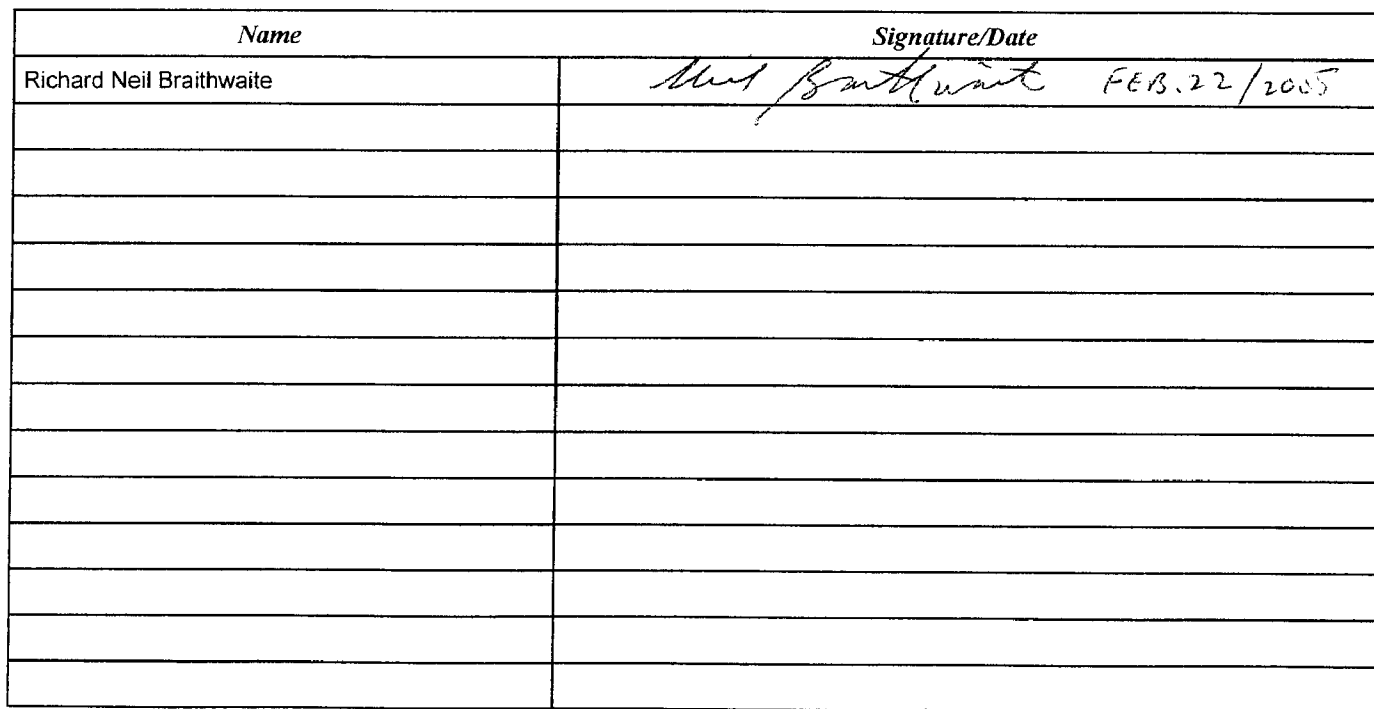 Name Signature/Date
Richard Neil Braithwaite Neil Braithwaite FEB.22/2005